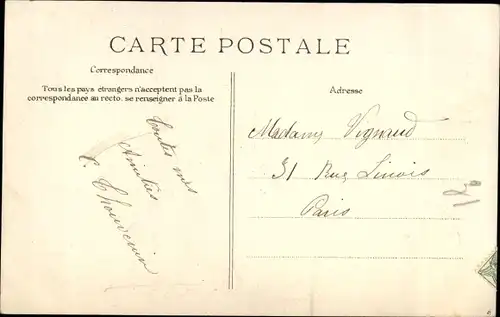 CARTE POSTALE
Correspondance
Tous les pays étrangers n'acceptent pas la
correspondance au recto. se renseigner à la Poste
toutes mes
Amitiés
C. Thouvenin
Adresse
Madame Vignaud
31 Rue Linois
Paris